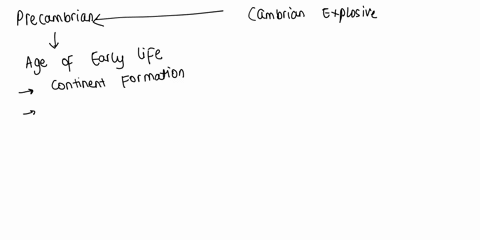 Precambrian Cambrian Explosive
Age of Early Life
→ Continent Formation
→